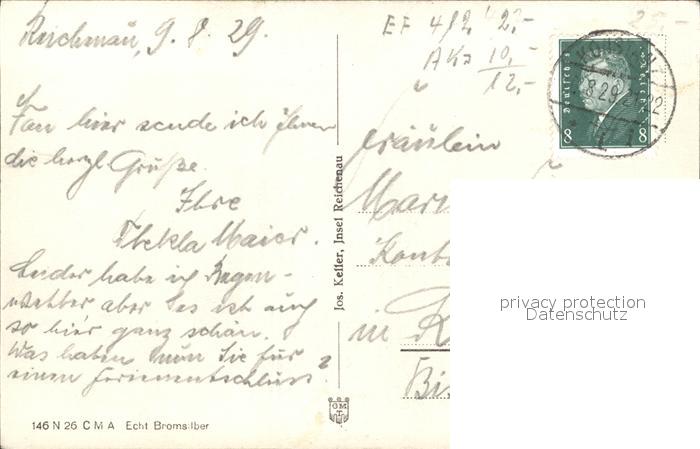 Reichenau, 9. 8. 29.
EF 4/2 22,-
AKs 10,-
12,-
25,-
KONSTANZ
8.29. 21-22
Deutsches Reich
8 8
Von hier sende ich Ihnen
die herzl. Grüße.
Ihre
Thekla Maier.
Leider habe ich Regen-
wetter aber es ist auch
so hier ganz schön.
Was haben nun Sie für
einen Ferienentschluss?
Jos. Keller, Insel Reichenau
Fräulein
Mari
in
privacy protection
Datenschutz
146 N 26 C M A Echt Bromsilber